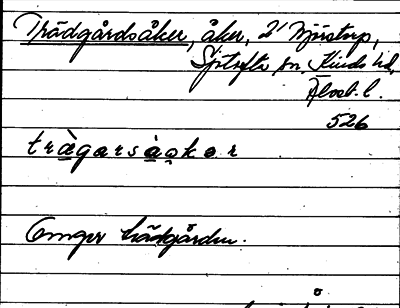 Trädgårdsåker, åker, 2/1 Mjöstorp,
Sjötofta sn. Kinds hd,
Älvsb. l.
526
trägarsåokər
Omger trädgården.